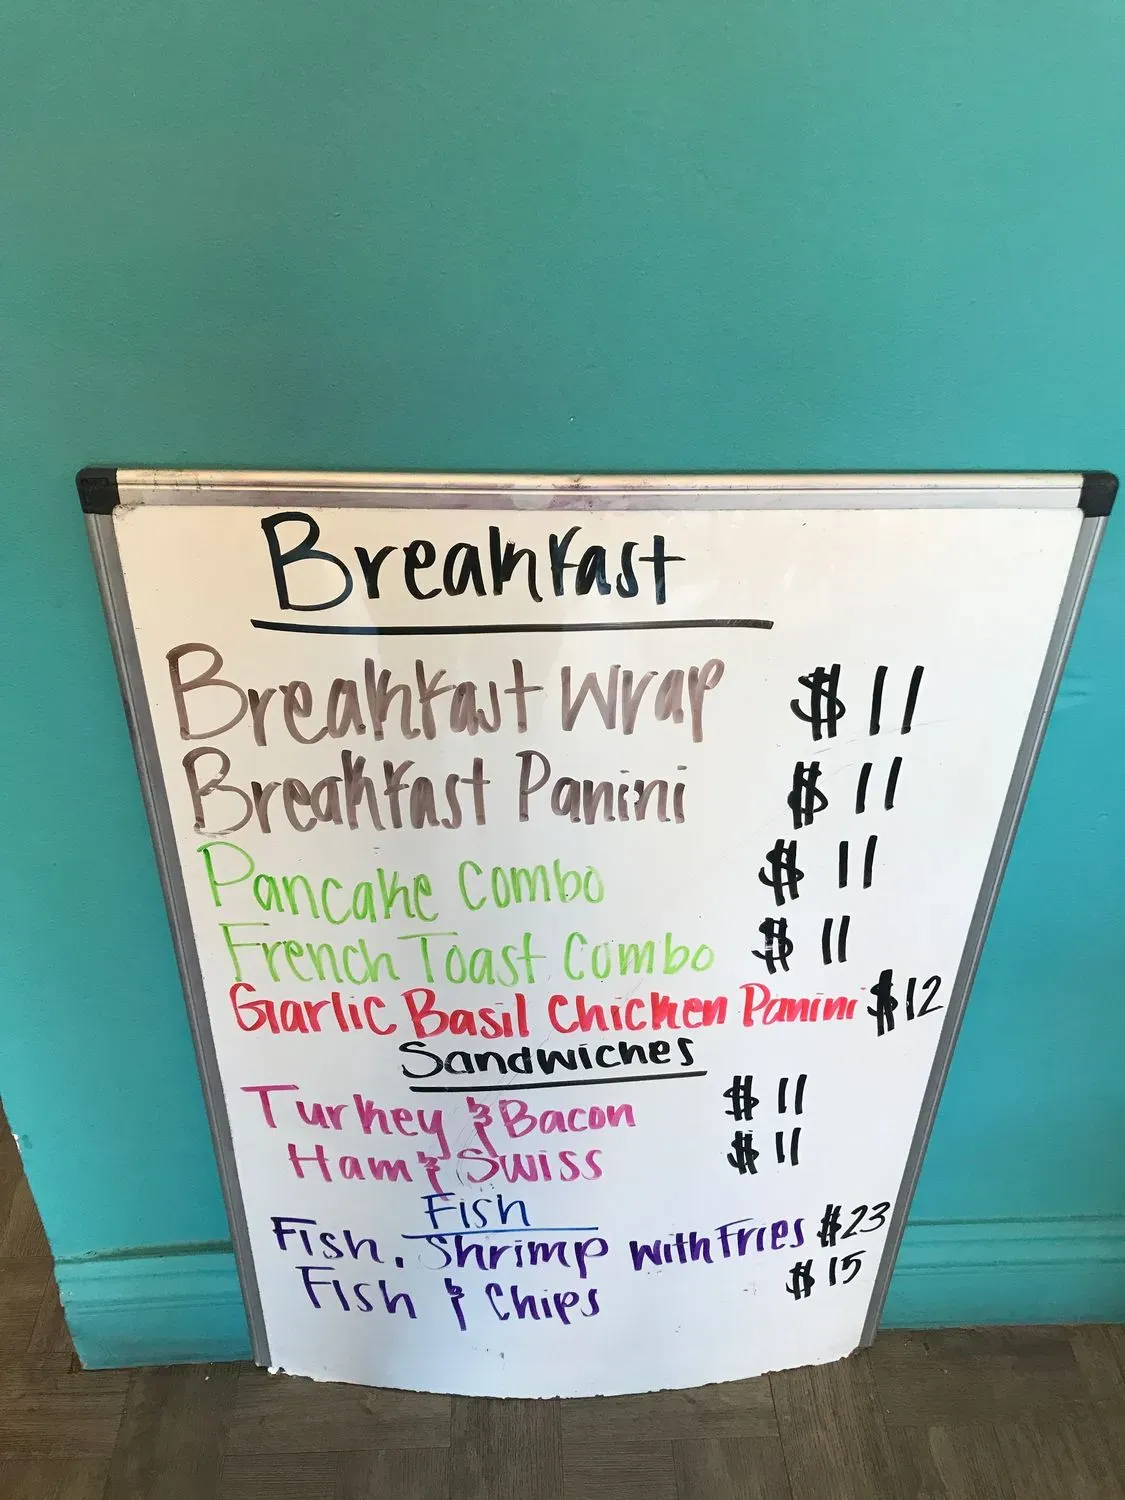 Breakfast
Breakfast Wrap $11
Breakfast Panini $11
Pancake Combo $11
French Toast Combo $11
Garlic Basil Chicken Panini $12
Sandwiches
Turkey & Bacon $11
Ham & Swiss $11
Fish
Fish, Shrimp with Fries $23
Fish & Chips $15